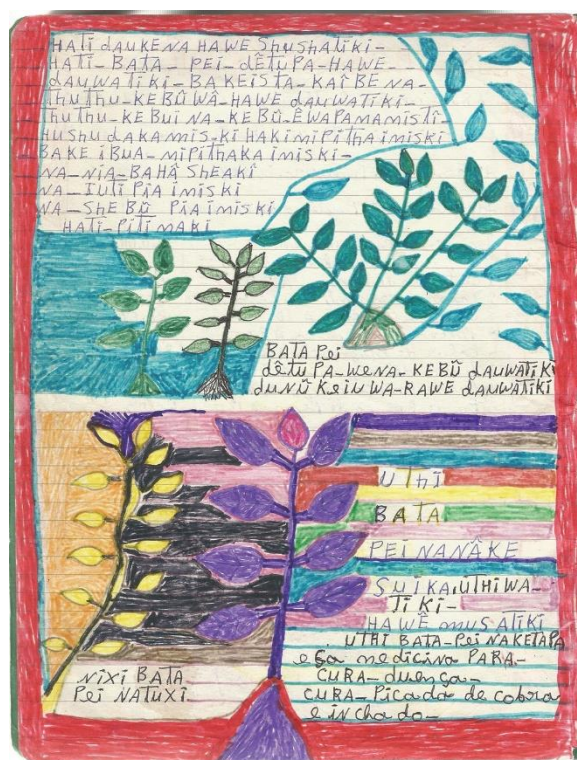 HATI DAUKENA HAWE SHUSHATIKI-
HATI-BATA- PEI-DÊTUPA-HAWE
DAUWATIKI-BAKEISTA-KAĨBENA-
THUTHU-KEBŨWÂ-HAWE DAUWATIKI-
THUTHU-KEBUINA-KEBŨ-ÊWAPAMAMISTI
HUSHUDAKAMIS-KI HAKIMIPITHAIMISKI
BAKE IBUA-MIPITHAKA IMISKI-
NA-NIA-BAHÃ SHEAKI
NA-IULI PIA IMISKI
NA-SHEBŨ PIA IMISKI
HATI-PITIMAKI
BATA PEI
DÊTUPA-WENA-KEBŨ DAUWATIKI
DUNŨ KEIUWA-RAWE DAUWATIKI
UTHĨ
BATA
PEI NANÃKE
SUIKA, UTHIWA-
TIKI-
HAWÊ MUSATIKI
UTHI BATA-PEI NAKETAPA
esa medicina PARA-
CURA-duença-
CURA-Picada de cobra
e inchado-
NIXI BATA
PEI NATUXI